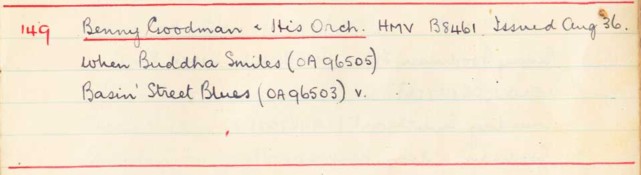 149 Benny Goodman & His Orch. HMV B8461 Issued Aug 36.
When Buddha Smiles (OA 96505)
Basin' Street Blues (OA 96503) v.